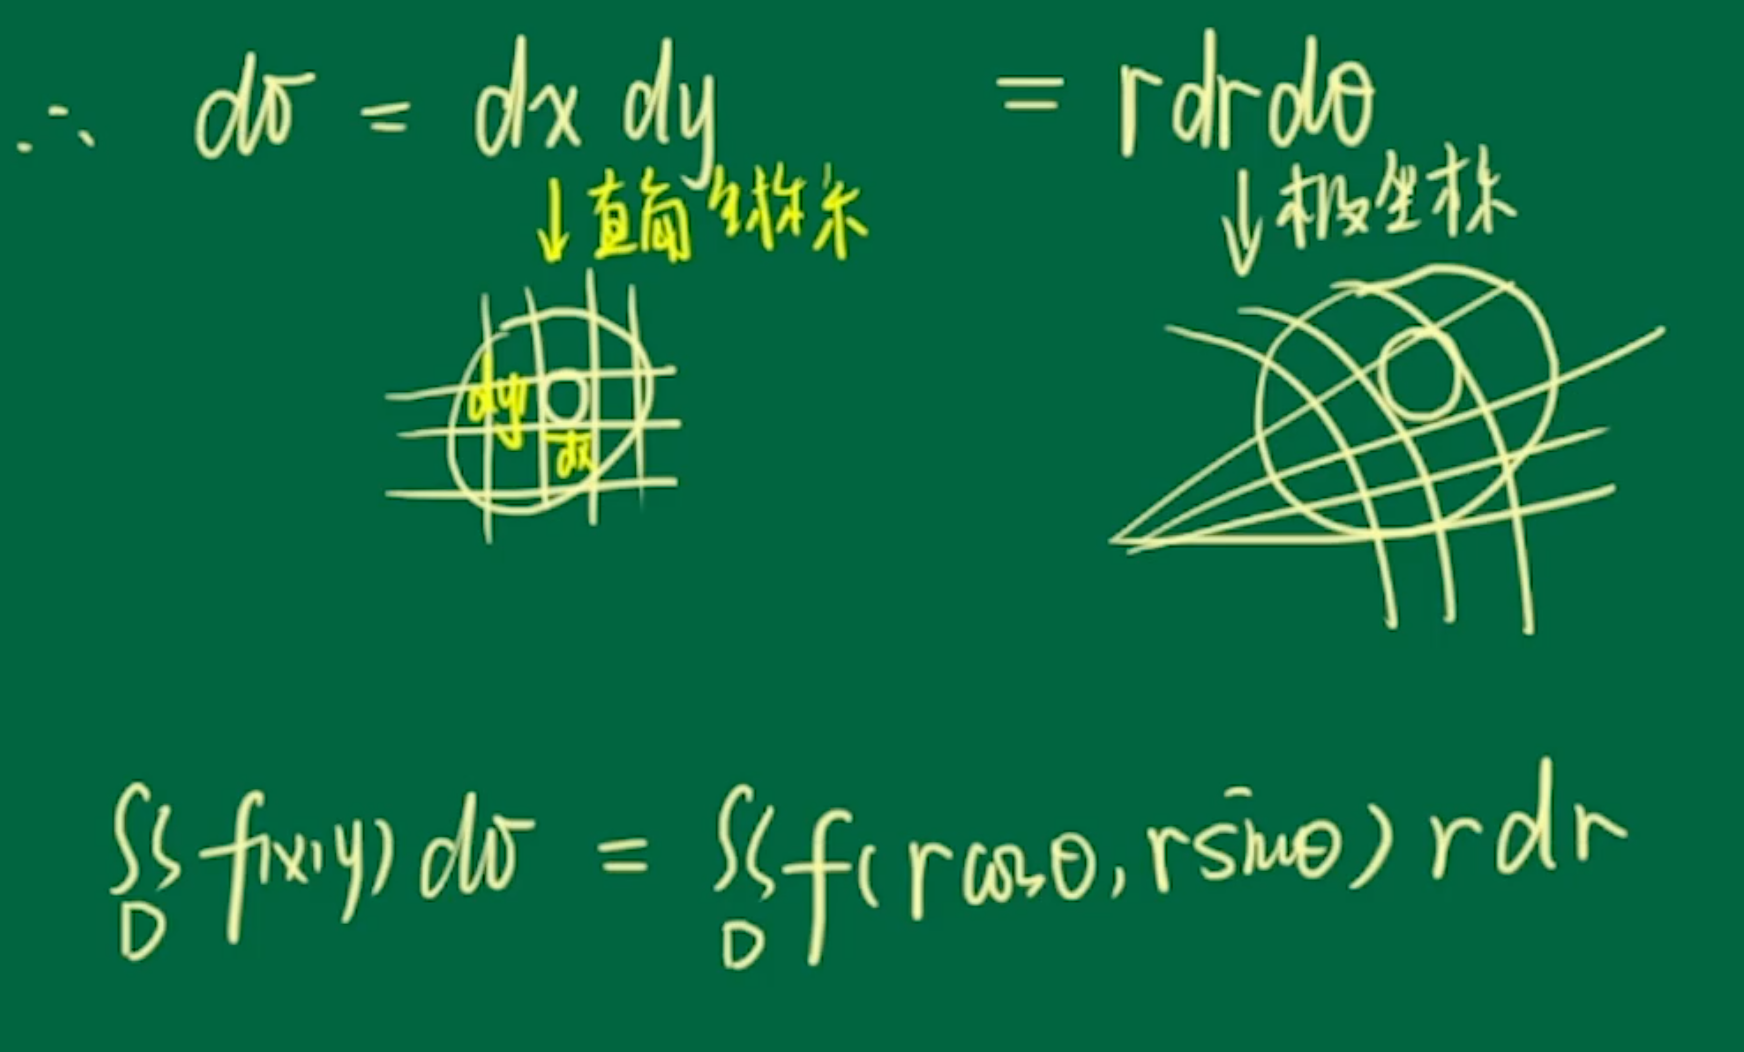 ∴ dσ = dx dy = r dr dθ
↓ 直角坐标系 ↓ 极坐标
dy
dx
∬_D f(x,y) dσ = ∬_D f(r cosθ, r sinθ) r dr